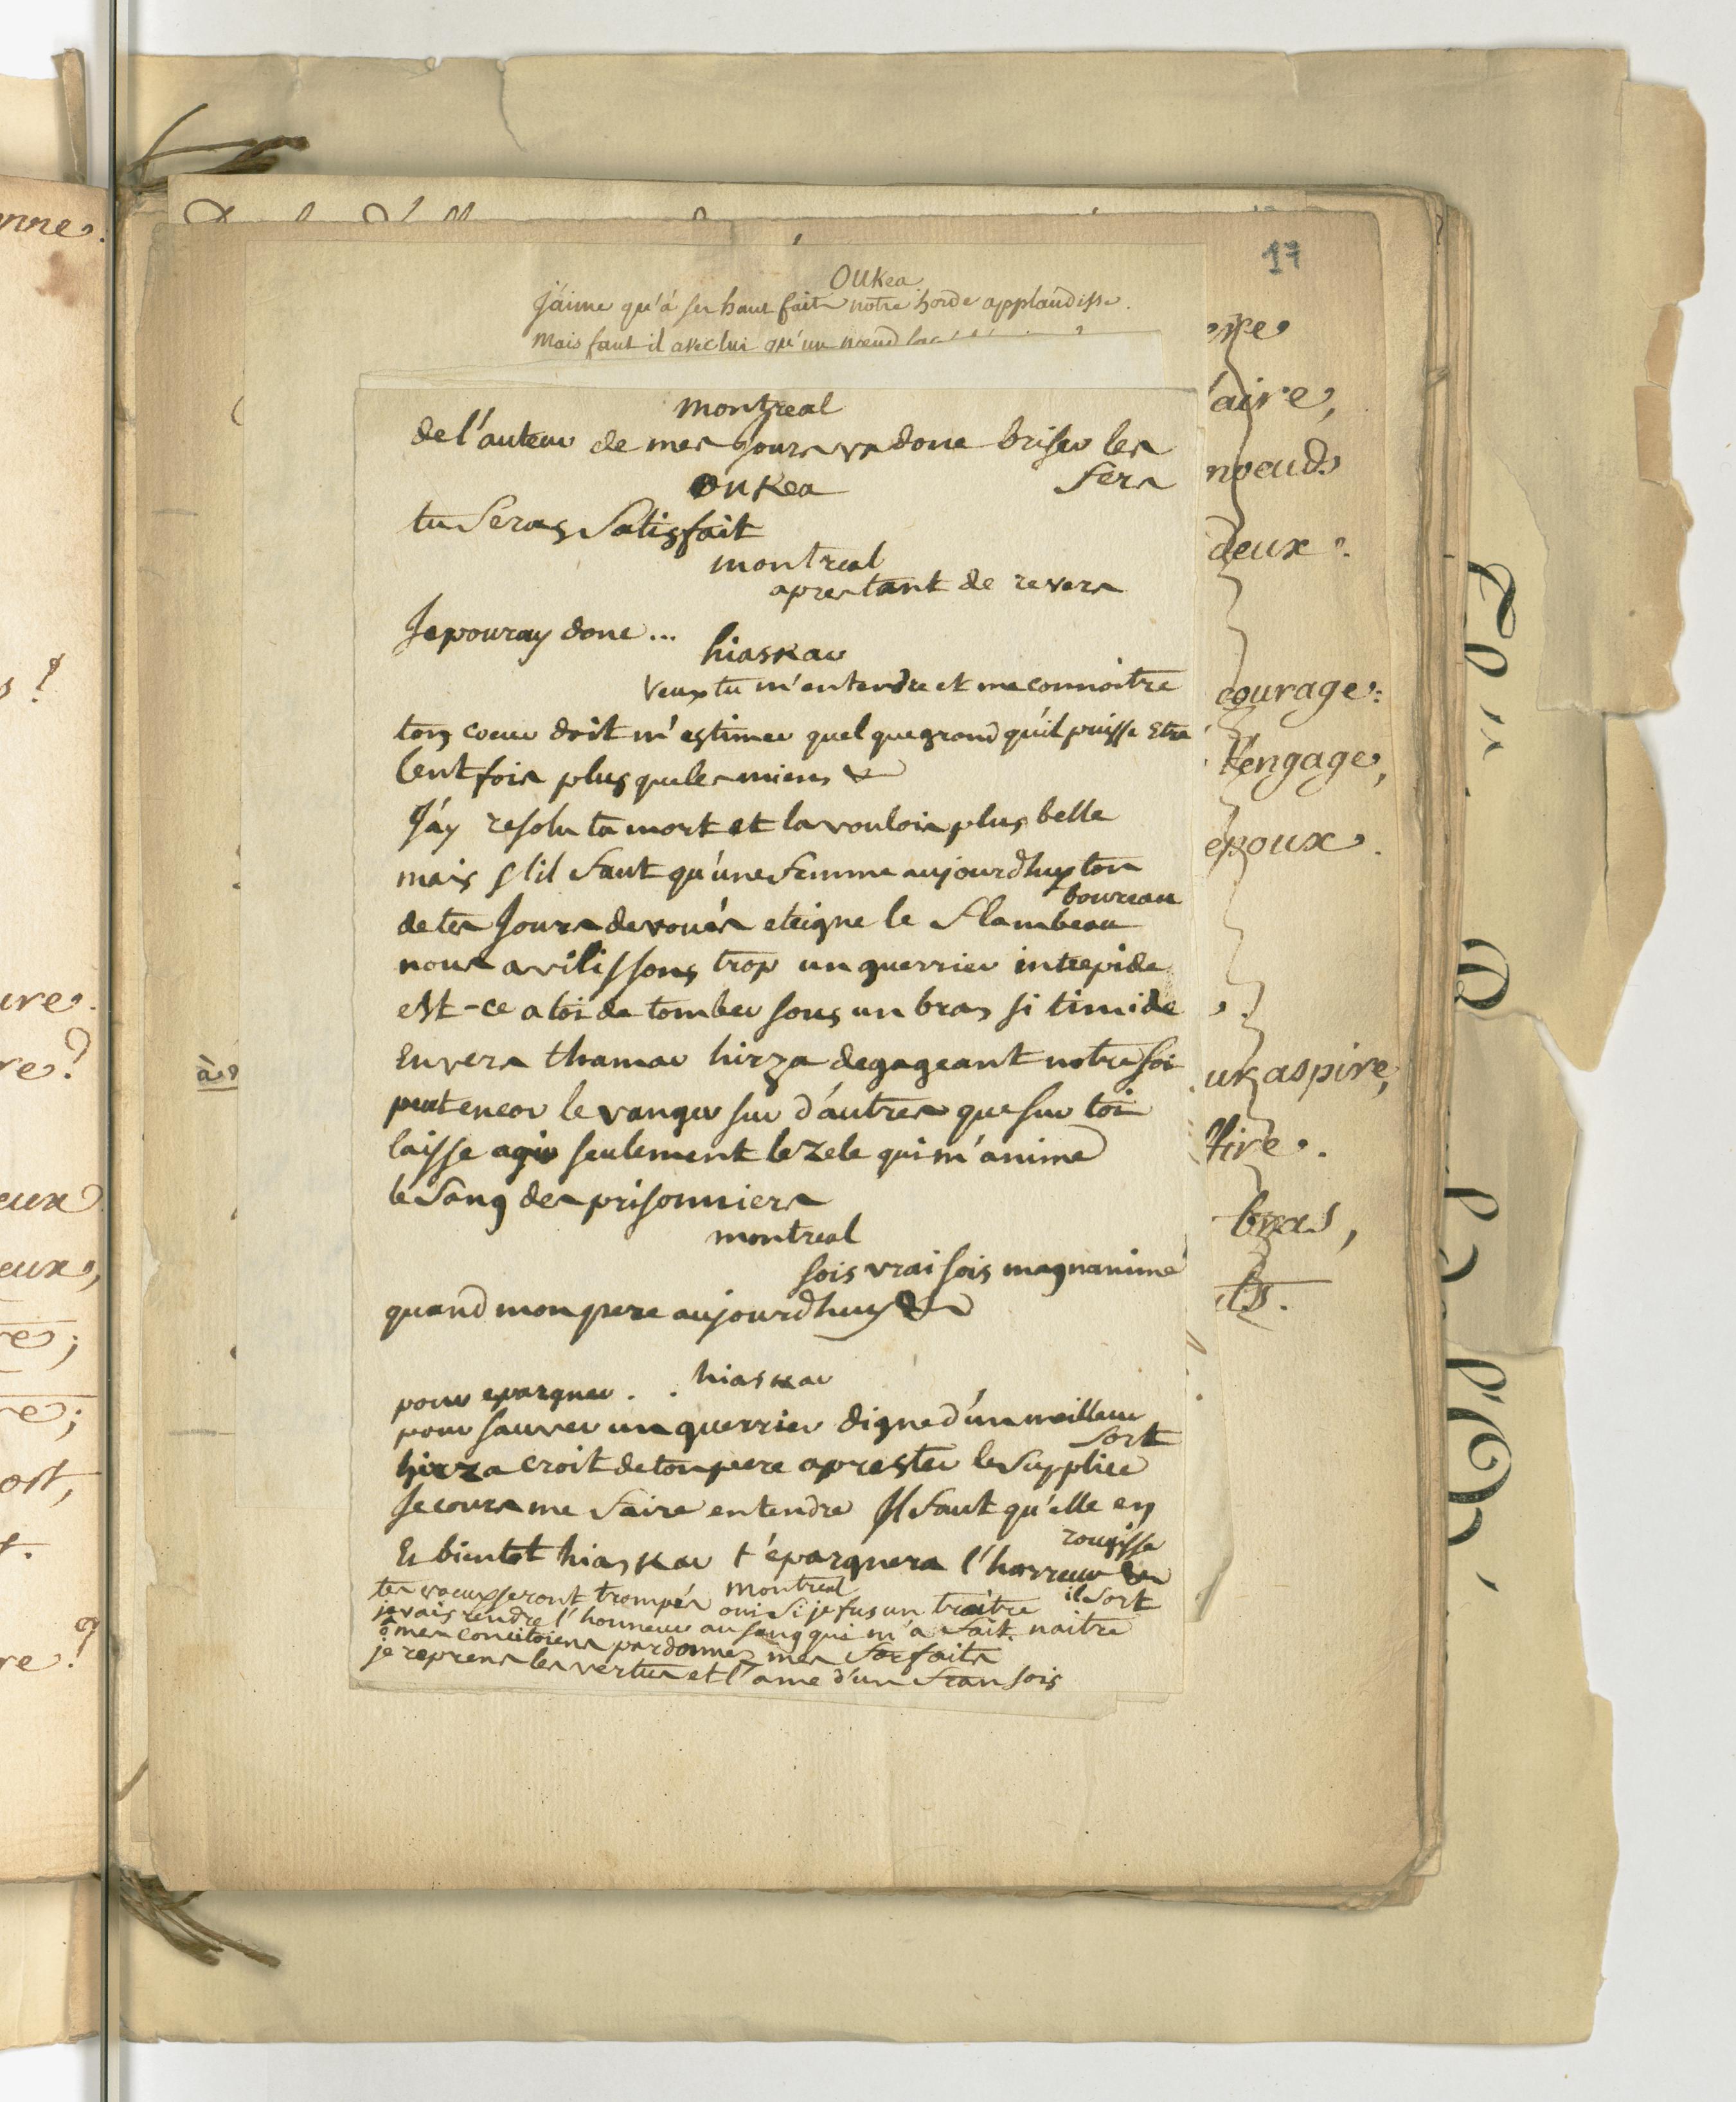 17
Oukea
j'aime qu'à ses haut faits notre horde applaudisse.
Mais faut il avec lui qu'un nœud
montreal
de l'auteur de mes jours va donc briser les
fers
oukea
tu seras satisfait
montreal
apres tant de revers
Je pouray donc...
hiaskar
veux tu m'entendre et me connoitre
ton coeur doit m'estimer quel que grand qu'il puisse Etre
Cent fois plus que les miens &
J'ay resolu ta mort et la voulois plus belle
mais s'il faut qu'une femme aujourdhuy ton
boureau
de tes jours devoués eteigne le flambeau
nous avilissons trop un guerrier intrepide
est-ce a toi de tomber sous un bras si timide
Envers thamar hirza degageant notre foi
peut encor le vanger sur d'autres que sur toi
laisse agir seulement le zele qui m'anime
le sang des prisonniers
montreal
sois vrai sois magnanime
quand mon pere aujourdhuy &
hiaskar
pour epargner . .
pour sauver un guerrier digne d'un meilleur
sort
hirza croit de ton pere aprester le supplice
Je cours me faire entendre Il faut qu'elle en
rougisse
Et bientot hiaskar t'epargnera l'horreur &
il sort
montreal
tes voeux seront trompés oui si je fus un traitre
je vais rendre l'honneur au sang qui m'a fait naitre
ô mes concitoiens pardonnez mes forfaits
je reprens les vertus et l'ame d'un fransois
laire,
noeuds
deux.
courage:
t'engage,
époux.
aspire,
tire.
bras,